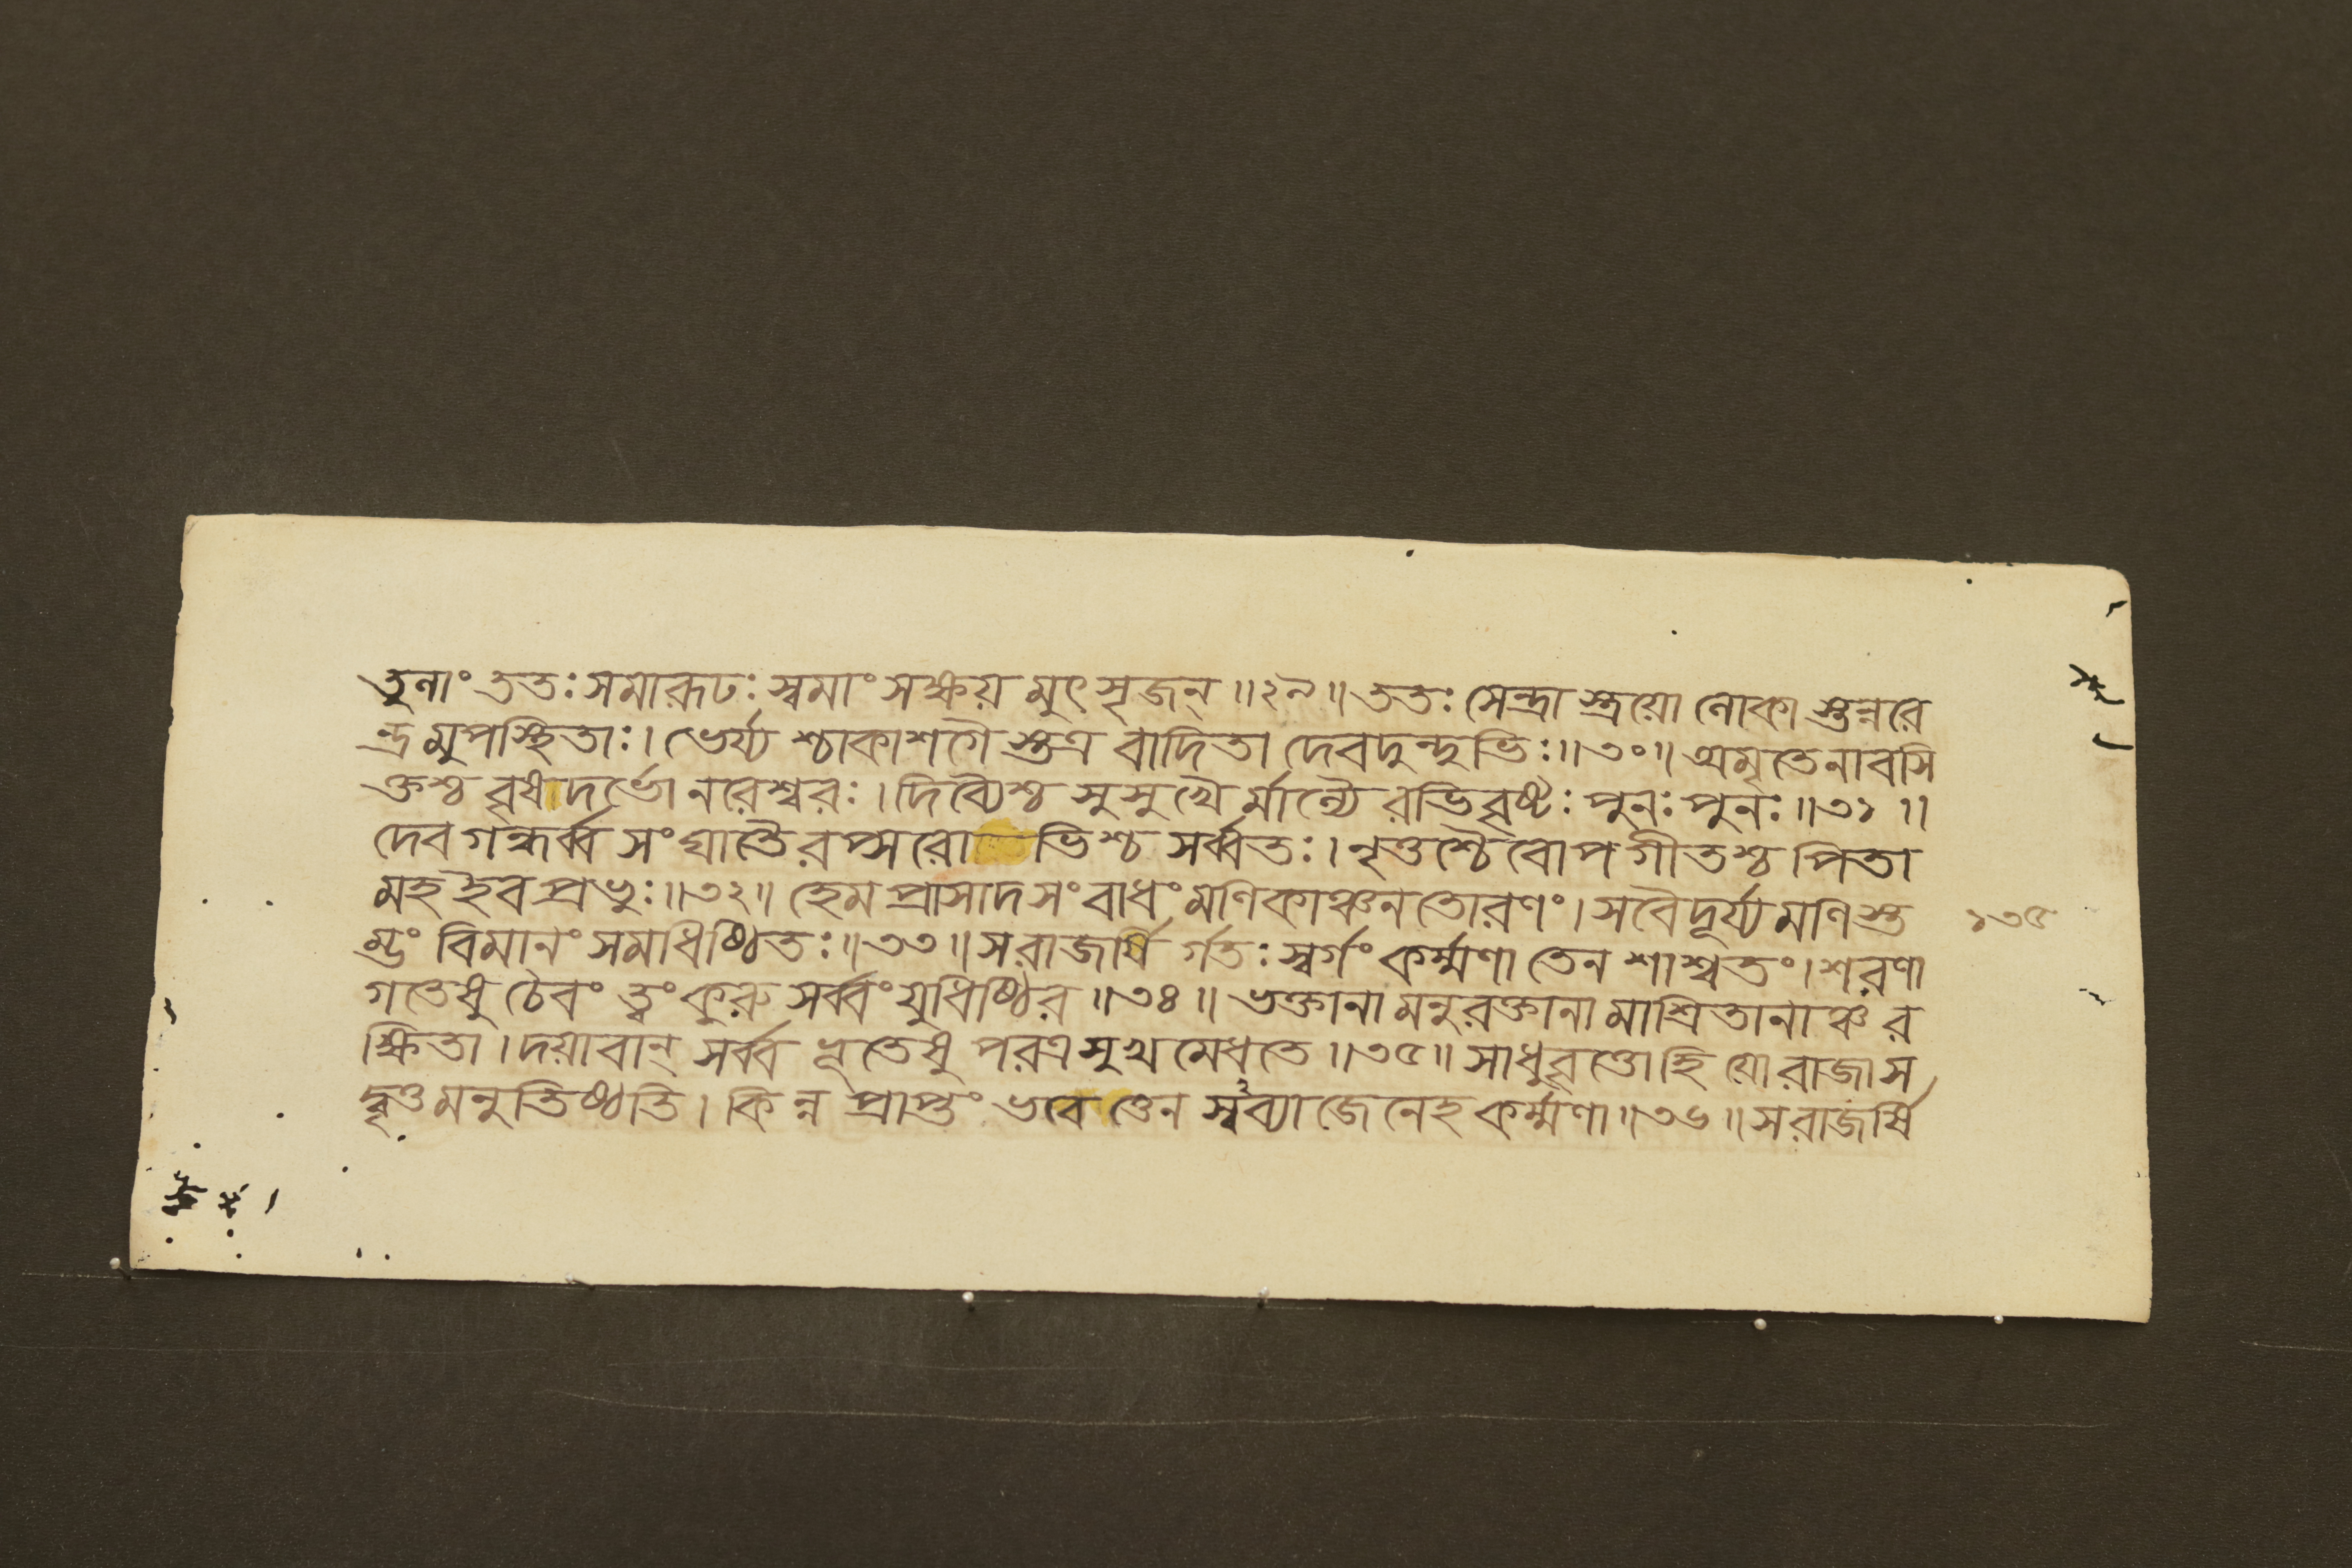 তুনাং ততঃ সমারূঢঃ স্বমাংসক্ষয়মুৎসৃজন্ ॥২৯॥ ততঃ সেন্দ্রাস্ত্রয়ো লোকাস্তন্নরে
ন্দ্রমুপস্থিতাঃ। ভের্য্যশ্চাকাশগৈস্তত্র বাদিতা দেবদুন্দুভিঃ॥৩০॥ অমৃতেনাবসি
ক্তশ্চ বৃষাদর্ভো নরেশ্বরঃ। দিব্যৈশ্চ সুসুখৈর্মাল্যৈরভিবৃষ্টঃ পুনঃ পুনঃ ॥৩১॥
দেবগন্ধর্ব্বসংঘাতৈরপ্সরোভিশ্চ সর্ব্বতঃ। নৃত্তশ্চৈবোপগীতশ্চ পিতা
মহ ইব প্রভুঃ॥৩২॥ হেমপ্রাসাদসংবাধং মণিকাঞ্চনতোরণং। সবৈদূর্য্যমণিস্ত
ম্ভং বিমানং সমাধিষ্ঠিতঃ॥৩৩॥ স রাজর্ষির্গতঃ স্বর্গং কর্ম্মণা তেন শাশ্বতং। শরণা
১৩৫
গতেষু চৈবং ত্বং কুরু সর্ব্বং যুধিষ্ঠির ॥৩৪॥ ভক্তানামনুরক্তানামাশ্রিতানাঞ্চ র
ক্ষিতা। দয়াবান্ সর্ব্বভূতেষু পরত্র সুখমেধতে ॥৩৫॥ সাধুবৃত্তো হি যো রাজা স
দ্বৃত্তমনুতিষ্ঠতি। কিন্ন প্রাপ্তং ভবেত্তেন স্বব্যাজেনেহ কর্ম্মণা॥৩৬॥ স রাজর্ষি